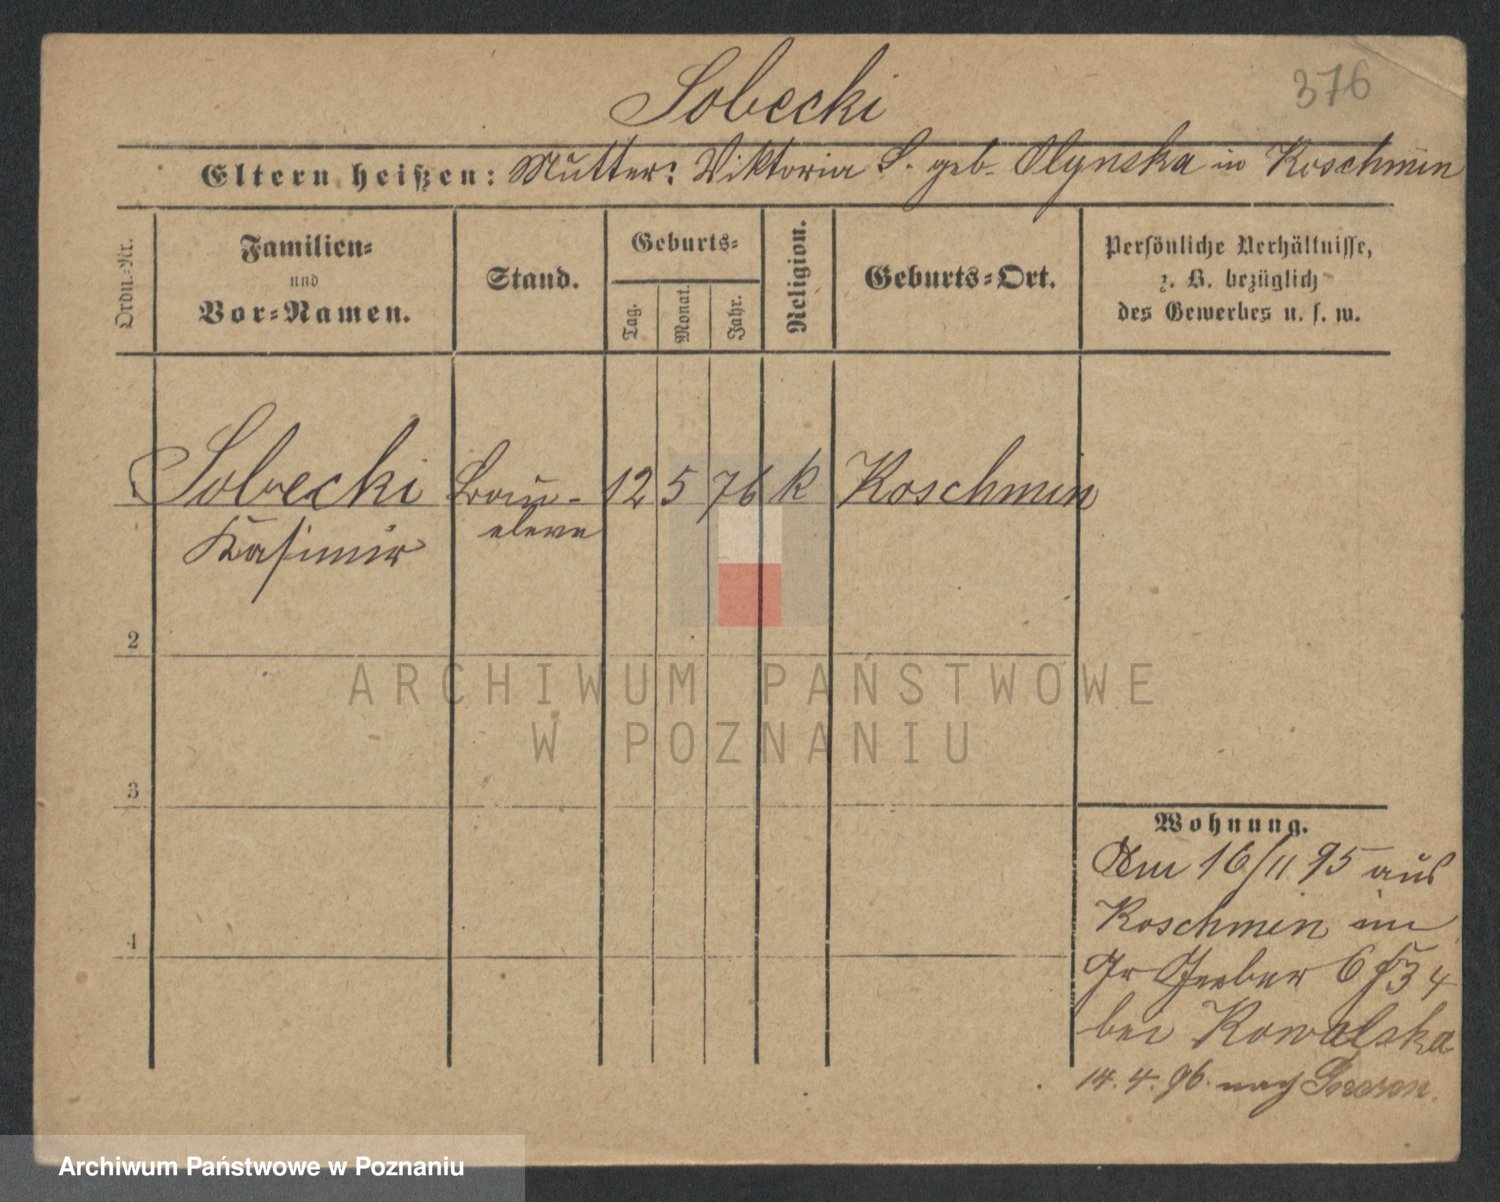 Sobecki
376
Eltern heißen: Mutter: Viktoria S. geb. Olynska in Koschmin
Ordn.-Nr.
Familien-
und
Vor-Namen.
Stand.
Geburts-
Tag.
Monat.
Jahr.
Religion.
Geburts-Ort.
Persönliche Verhältnisse,
z. B. bezüglich
des Gewerbes u. s. w.
Sobecki Bau- 12 5 76 k Koschmin
Kasimir eleve
2
3
4
ARCHIWUM PAŃSTWOWE
W POZNANIU
Wohnung.
Am 16/11 95 aus
Koschmin in
Gr Gerber 6 34
bei Kowalska
14.4.96. nach
Archiwum Państwowe w Poznaniu